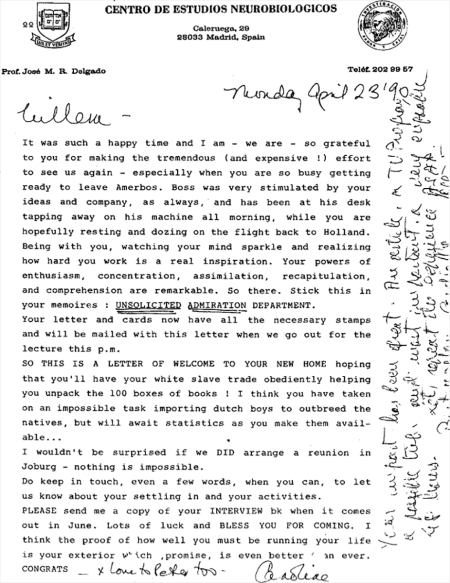 CENTRO DE ESTUDIOS NEUROBIOLOGICOS
Caleruega, 29
28033 Madrid, Spain
Prof. José M. R. Delgado
Teléf. 202 99 57
Monday April 23 '90
Willem -
It was such a happy time and I am - we are - so grateful
to you for making the tremendous (and expensive !) effort
to see us again - especially when you are so busy getting
ready to leave Amerbos. Boss was very stimulated by your
ideas and company, as always, and has been at his desk
tapping away on his machine all morning, while you are
hopefully resting and dozing on the flight back to Holland.
Being with you, watching your mind sparkle and realizing
how hard you work is a real inspiration. Your powers of
enthusiasm, concentration, assimilation, recapitulation,
and comprehension are remarkable. So there. Stick this in
your memoires : UNSOLICITED ADMIRATION DEPARTMENT.
Your letter and cards now have all the necessary stamps
and will be mailed with this letter when we go out for the
lecture this p.m.
SO THIS IS A LETTER OF WELCOME TO YOUR NEW HOME hoping
that you'll have your white slave trade obediently helping
you unpack the 100 boxes of books ! I think you have taken
on an impossible task importing dutch boys to outbreed the
natives, but will await statistics as you make them avail-
able...
I wouldn't be surprised if we DID arrange a reunion in
Joburg - nothing is impossible.
Do keep in touch, even a few words, when you can, to let
us know about your settling in and your activities.
PLEASE send me a copy of your INTERVIEW bk when it comes
out in June. Lots of luck and BLESS YOU FOR COMING. I
think the proof of how well you must be running your life
is your exterior which ,promise, is even better than ever.
CONGRATS - x Love to Peter too - Caroline
Your impact has been great. An article, a TV Program,
a terrific trip, and most important a very enjoyable
48 hours. Let's repeat the experience ASAP.